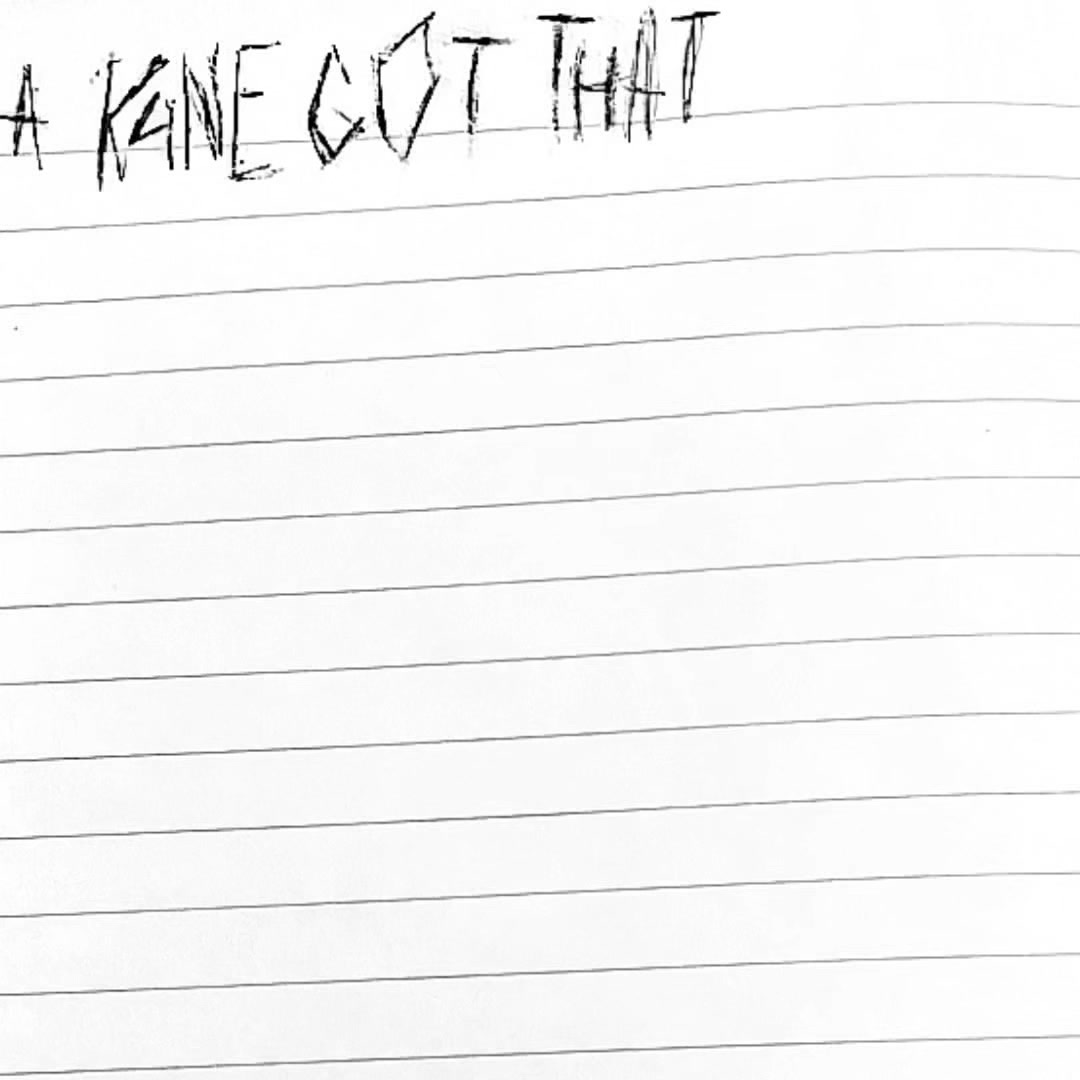 A KANE GOT THAT